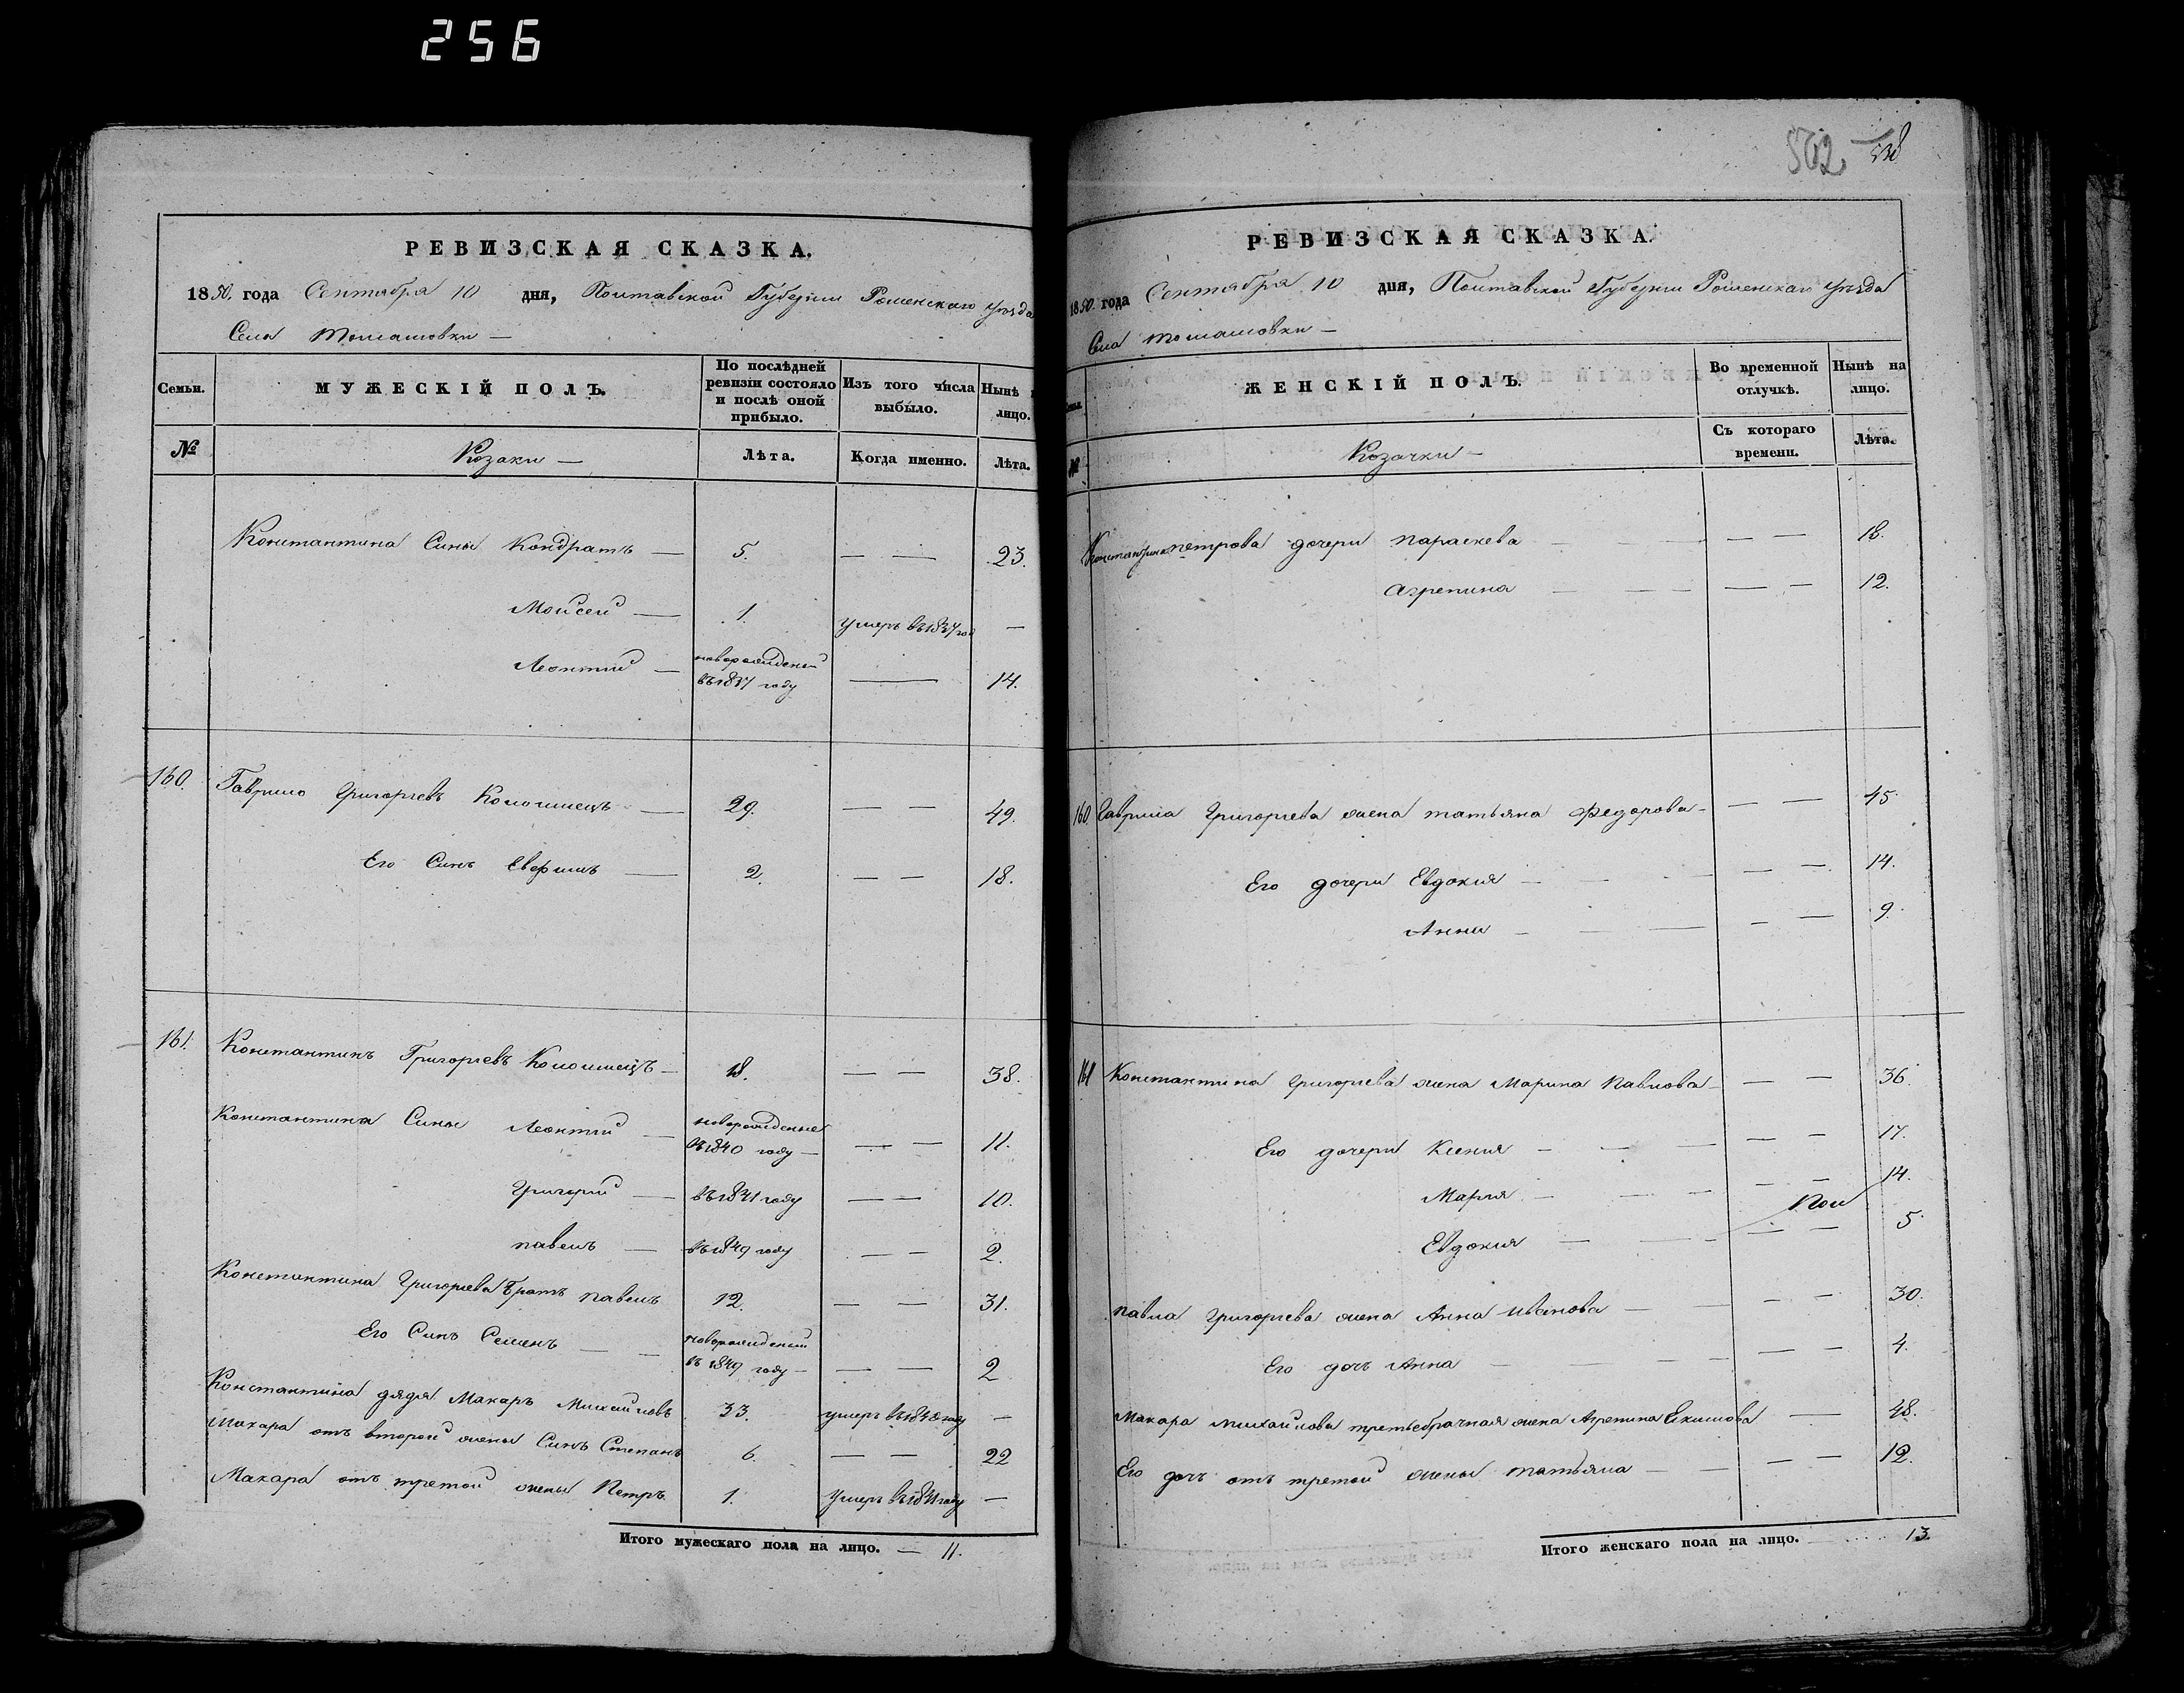 256
РЕВИЗСКАЯ СКАЗКА.
1850. года Сентября 10 дня, Полтавской Губернии Роменскаго уезда
Села Томашовки —
Семьи.
МУЖЕСКІЙ ПОЛЪ.
По послѣдней ревизіи состояло и послѣ оной прибыло.
Изъ того числа выбыло.
Нынѣ лицо.
№
Козаки —
Лѣта.
Когда именно.
Лѣта.
Константина Сины Кондратъ — 5. — — 23.
Мойсей — 1. умеръ въ 1837 год —
Леонтий — новорожденый въ 1837 году — 14.
160. Гаврило Григорьевъ Коломиецъ — 29. — — 49.
Его Синъ Евфимъ — 2. — — 18.
161. Константинъ Григорьевъ Коломиецъ — 18. — — 38.
Константина Сины Леонтий — новорожденые въ 1840 году — — — 11.
Григорий — въ 1841 году — — 10.
павелъ — въ 1849 году — — 2.
Константина Григорьева Братъ павелъ 12. — — 31.
Его Синъ Семенъ — — новорожденый въ 1849 году — — — 2
Константина дядя Макаръ Михайловъ 33. умеръ въ 1848 году —
Макара отъ второй жены Синъ Степанъ 6. — — 22
Макара отъ третой жены Петръ 1. Умеръ въ 1841 году —
Итого мужескаго пола на лицо. — 11.
502
РЕВИЗСКАЯ СКАЗКА.
1850. года Сентября 10 дня, Полтавской Губернии Роменскаго уезда
Села Томашовки —
ЖЕНСКІЙ ПОЛЪ.
Во временной отлучкѣ.
Нынѣ на лицо.
№
Козачки —
Съ котораго времени.
Лѣта.
Константина петрова дочери параскева — — — 18.
Агрепина — — — 12.
160. Гаврила Григорьева жена татьяна Федорова — — — 45
Его дочери Евдокия — — — 14.
Анна — — — 9.
161 Константина Григорьева жена Марина павлова — — — 36.
Его дочери Ксения — — — 17.
Мария — — — 14.
Евдокия — — — 5.
павла Григорьева жена Анна иванова — — — 30.
Его дочъ Анна — — — 4.
Макара михайлова третьебрачная жена Агрепина Екимова — 48.
Его дочъ отъ третой жены татьяна — — — 12.
Итого женскаго пола на лицо. 13.